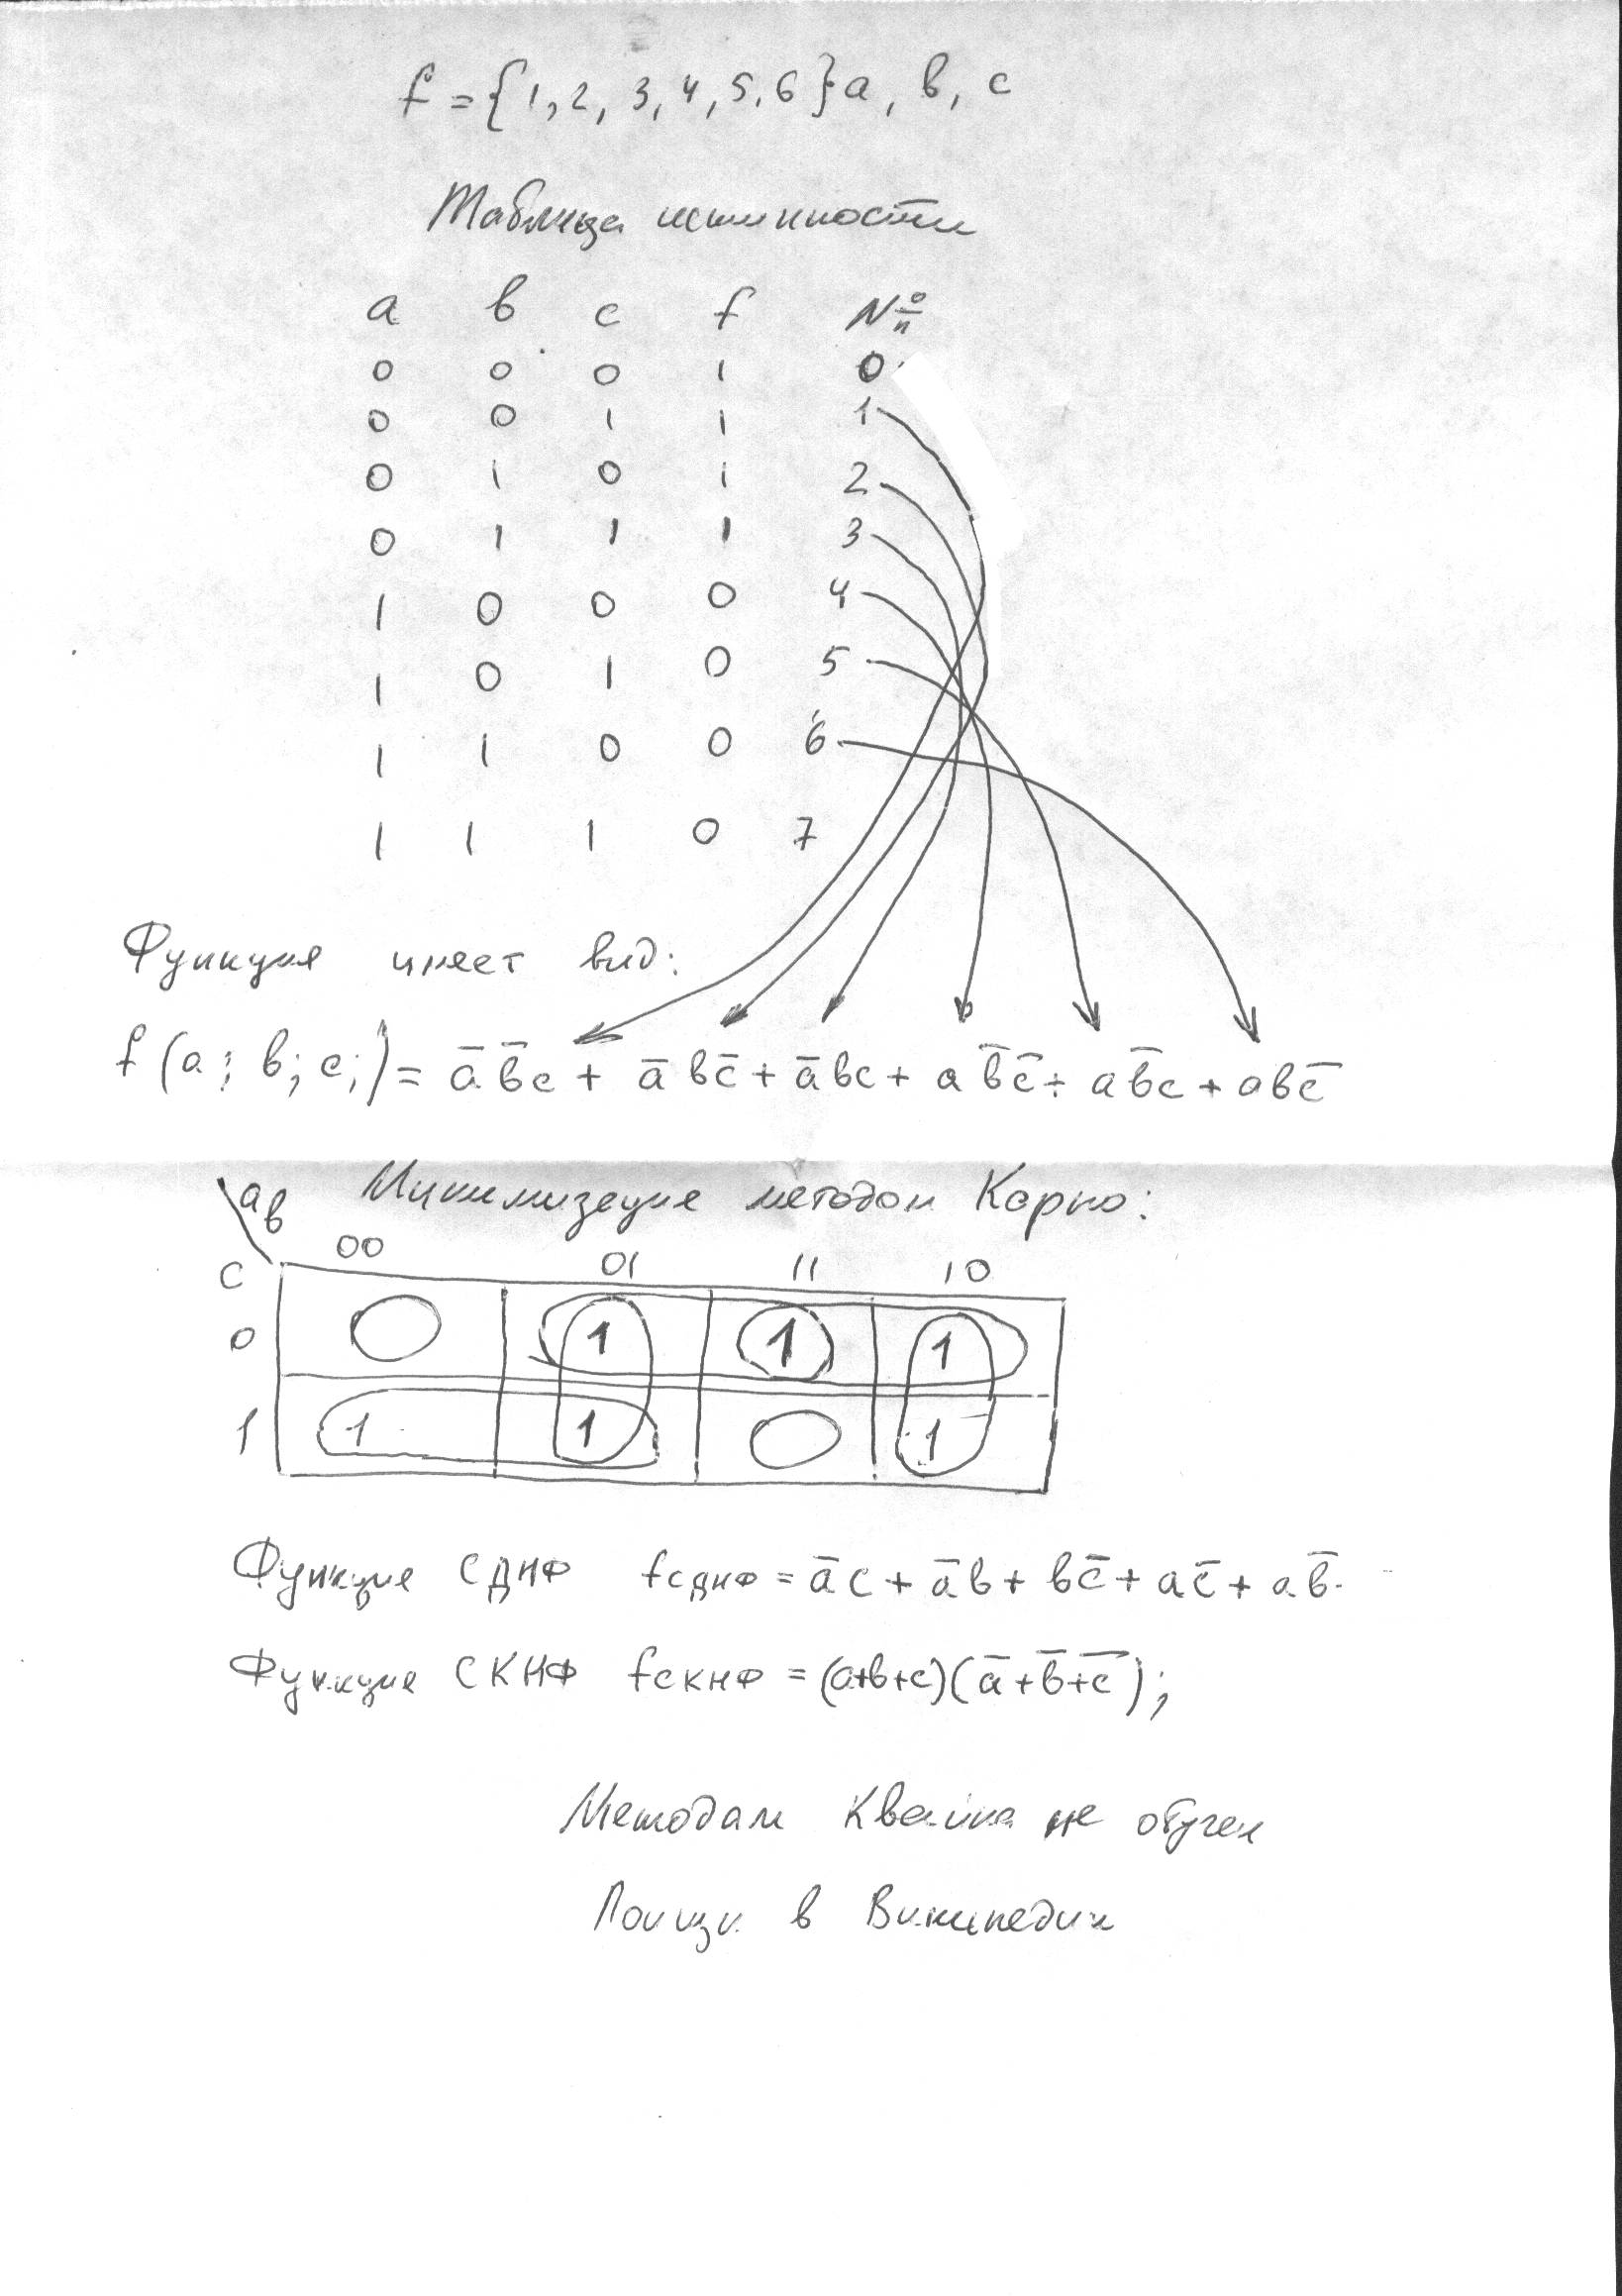 f = {1, 2, 3, 4, 5, 6} a, в, с
Таблица истинности
a в c f № п
0 0 0 1 0
0 0 1 1 1
0 1 0 1 2
0 1 1 1 3
1 0 0 0 4
1 0 1 0 5
1 1 0 0 6
1 1 1 0 7
Функция имеет вид:
f (a; в; c;) = a̅ в̅ c + a̅ в c̅ + a̅ в c + a в̅ c̅ + a в̅ c + a в c̅
Минимизация методом Карно:
aв
00 01 11 10
c
0 0 1 1 1
1 1 1 0 1
Функция СДНФ fсднф = a̅ c + a̅ в + в c̅ + a c̅ + a в̅.
Функция СКНФ fскнф = (a+в+c)(a̅+в̅+c̅);
Методам Квайна не обучен
Поищи в Википедии